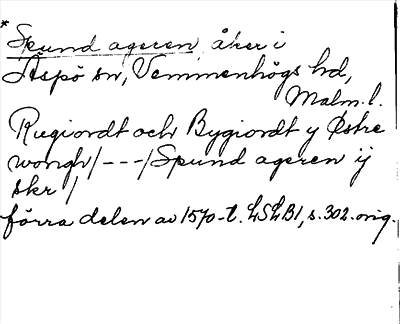 * Spund ageren, åker i
Aspö sn, Vemmenhögs hd,
Malm. l.
Rugiordt och Bygiordt y Østre
wongh / - - - / Spund ageren ij
skr /
förra delen av 1570-t. LSLB1, s. 302. orig.